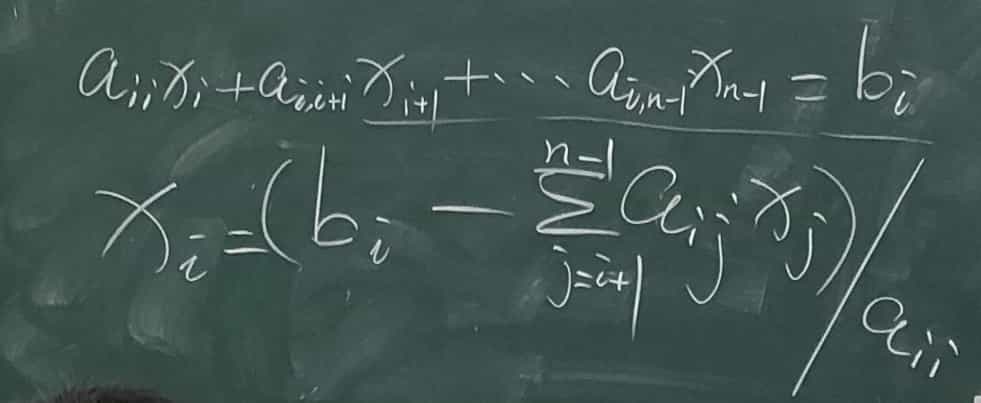 a_{ii}x_i + a_{i,i+1}x_{i+1} + ⋯ a_{i,n-1}x_{n-1} = b_i
x_i = (b_i - \sum_{j=i+1}^{n-1} a_{ij}x_j) / a_{ii}